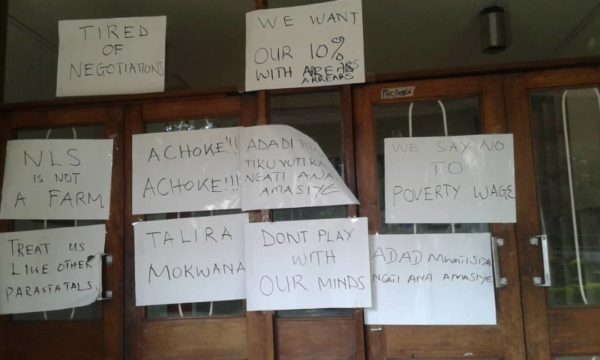 TIRED
OF
NEGOTIATIONS
WE WANT
OUR 10%
WITH ARREARS
ARREARS
NLS
IS NOT
A FARM
ACHOKE!!!
ACHOKE!!!
ADADI
TIKUYUTIRA
NGATI ANA
AMASIYE
WE SAY NO
TO
POVERTY WAGE
TREAT US
LIKE OTHER
PARASTATALS
TALIRA
MOKWANA
DONT PLAY
WITH
OUR MINDS
ADAD
NGATI ANA AMASIYE